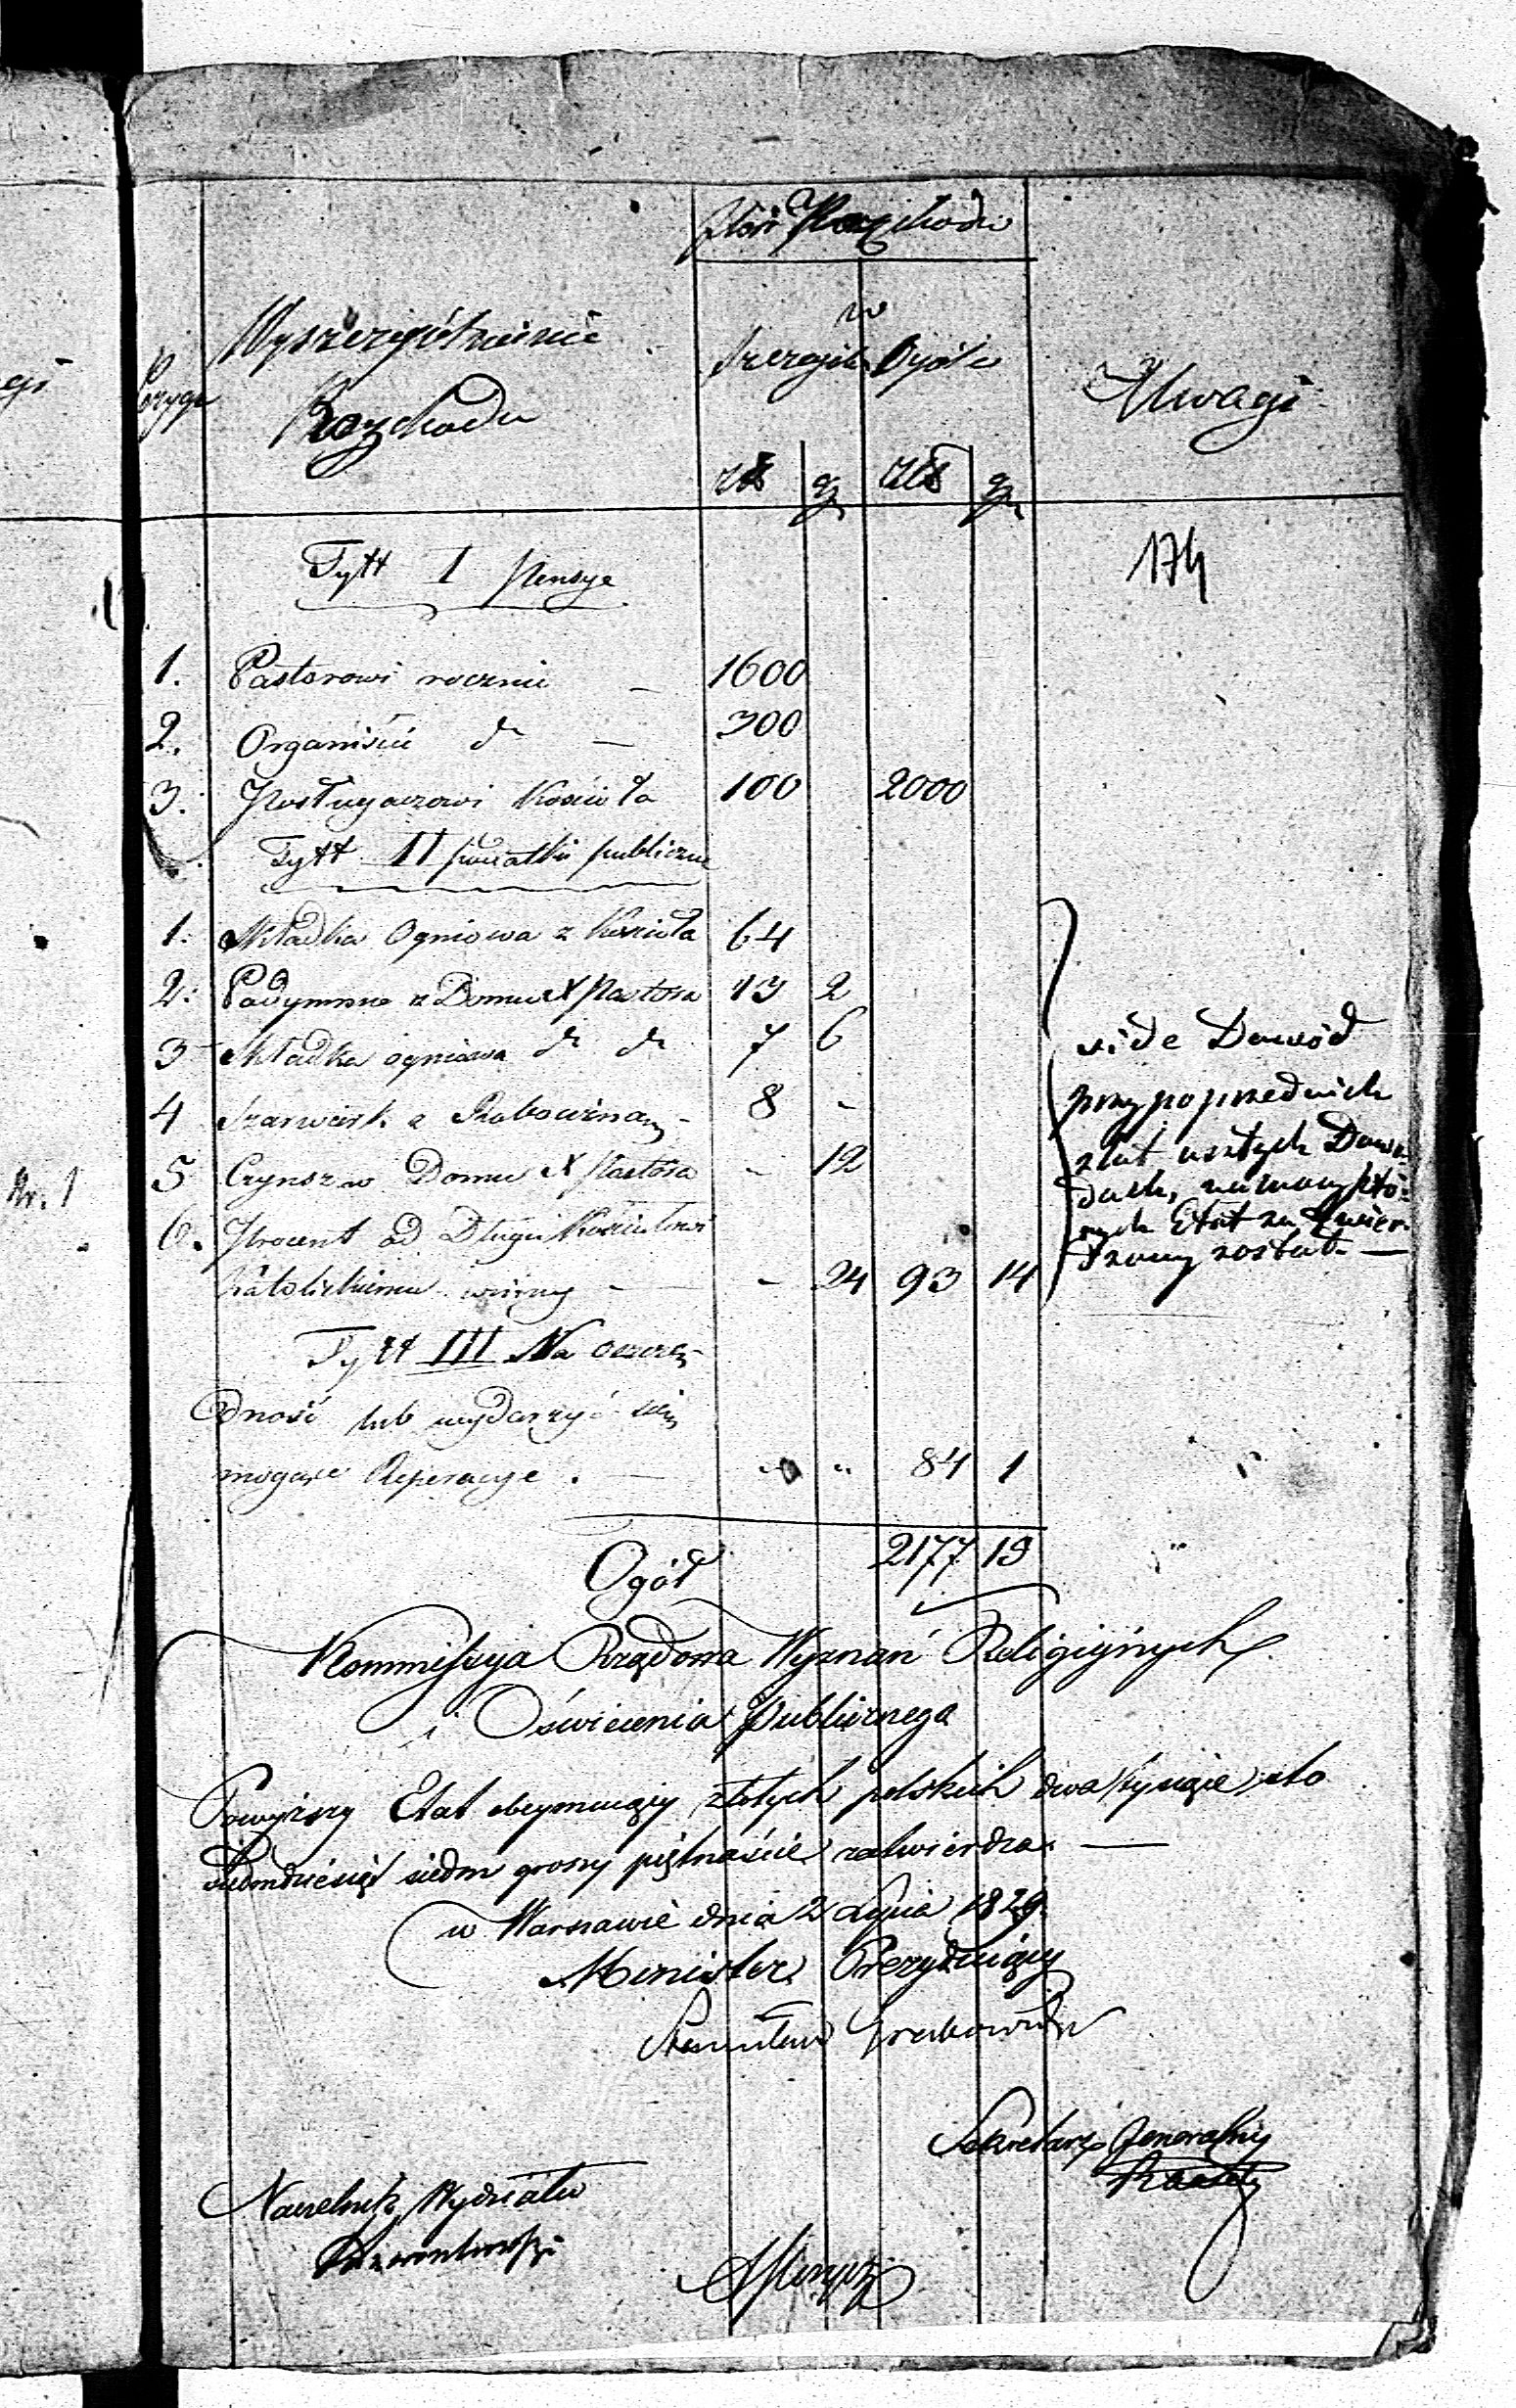 Ilość Rozchodu
w
Wyszczególnienie
Szczególe Ogóle
Pozyc
Rozchodu
Uwagi
złt gr złt gr
Tytt I Pensye
174
1. Pastorowi rocznie — 1600
2. Organiście do — 300
3. Posługaczowi Kościoła 100 2000
Tytt II podatki publiczne
1. Składka Ogniowa z Kościoła 64
2. Podymne z Domu X Pastora 13 2
3 Składka ogniowa do do 7 6
4 Szarwark z Probowizną - 8 -
5 Czynsz w Domu X Pastora - 12
6. Procent od Długu Kościołowi
Katolickiemu winny — - 24 93 14
vide Dowód
przy poprzednich
złat
Etat za twier-
dzony został. —
Tytt III Na oszczę-
dność lub wydarzyć się
mogące Reperacye. — 84 1
Ogół 2177 15
Kommissyja Rządowa Wyznań Religijnych
i Oświecenia Publicznego
Powyższy Etat obeymuiący złotych polskich dwa tysiące sto
siedmdziesiąt siedm groszy piętnaście zatwierdza. —
w Warszawie dnia 2 Lipca 1829.
Minister Prezyduiący
Stanisław Grabowski
Sekretarz Jeneralny
Naczelnik Wydziału